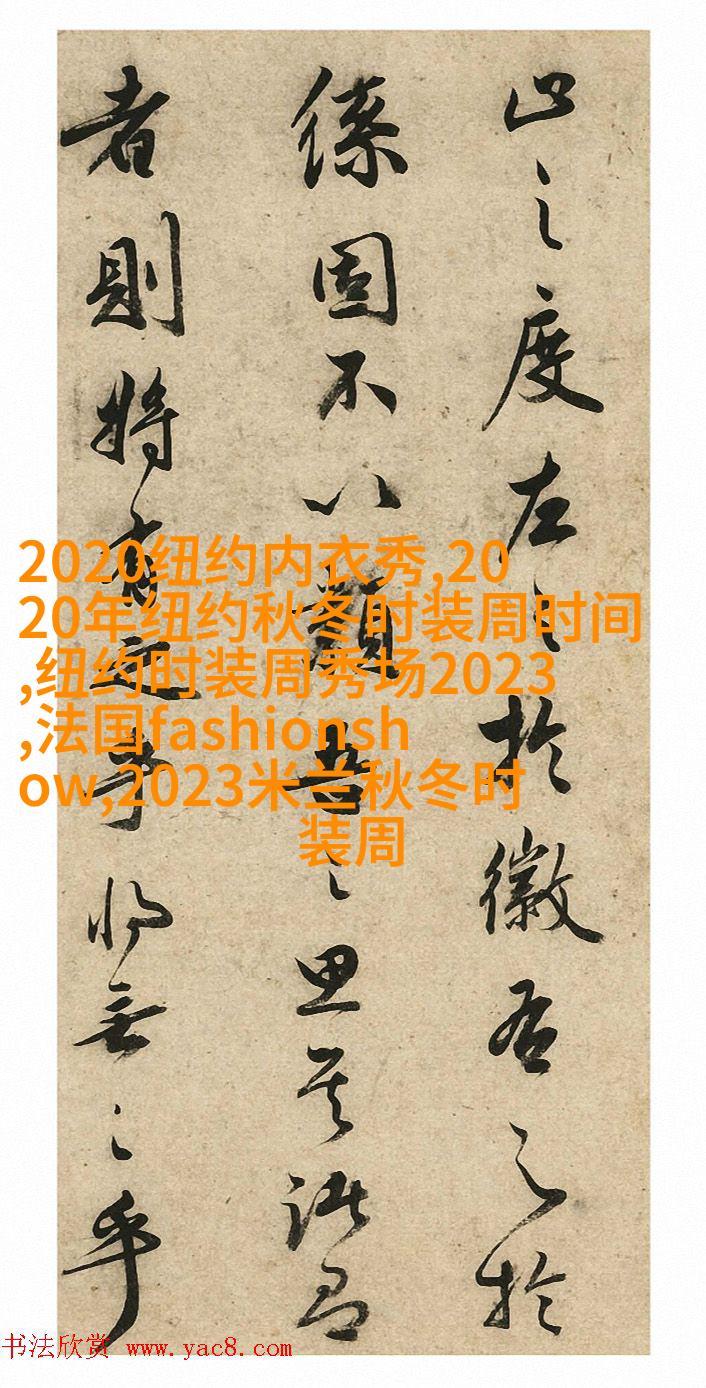 止之度左之於徽右之於
固不以吾之思其
者則將有乎將無之乎
2020纽约内衣秀,20
20年纽约秋冬时装周时间
,纽约时装周秀场2023
,法国fashionsh
ow,2023米兰秋冬时
装周
书法欣赏 www.yac8.com